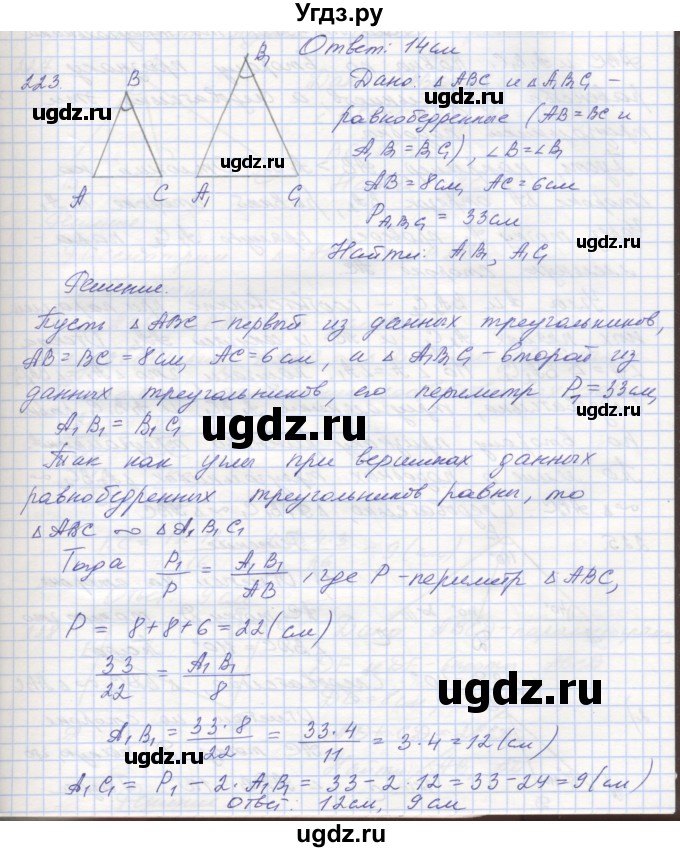 Угдз.ру
Ответ: 14см
223.
B
B₁
A
C
A₁
C₁
Дано: △ABC и △A₁B₁C₁ –
равнобедренные (AB = BC и
A₁B₁ = B₁C₁), ∠B = ∠B₁
AB = 8см, AC = 6см
P A₁B₁C₁ = 33см
Найти: A₁B₁, A₁C₁
Решение.
Пусть △ABC – первый из данных треугольников,
AB = BC = 8см, AC = 6см, а △A₁B₁C₁ – второй из
данных треугольников, его периметр P₁ = 33см,
A₁B₁ = B₁C₁
Так как углы при вершинах данных
равнобедренных треугольников равны, то
△ABC ∾ △A₁B₁C₁
Тогда P₁/P = A₁B₁/AB, где P – периметр △ABC,
P = 8+8+6 = 22(см)
33/22 = A₁B₁/8
A₁B₁ = 33·8/22 = 33·4/11 = 3·4 = 12(см)
A₁C₁ = P₁ – 2·A₁B₁ = 33 – 2·12 = 33 – 24 = 9(см)
Ответ: 12см, 9см
ugdz.ru
ugdz.ru
ugdz.ru
ugdz.ru
ugdz.ru
ugdz.ru
ugdz.ru
ugdz.ru
ugdz.ru
ugdz.ru